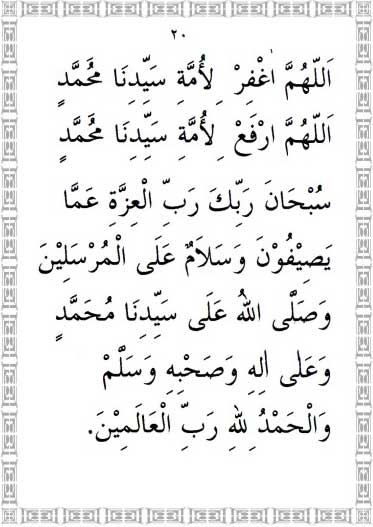 ٢٠
اَللّٰهُمَّ اغْفِرْ لِأُمَّةِ سَيِّدِنَا مُحَمَّدٍ
اَللّٰهُمَّ ارْفَعْ لِأُمَّةِ سَيِّدِنَا مُحَمَّدٍ
سُبْحَانَ رَبِّكَ رَبِّ الْعِزَّةِ عَمَّا
يَصِيْفُوْنَ وَسَلَامٌ عَلَى الْمُرْسَلِيْنَ
وَصَلَّى اللهُ عَلَى سَيِّدِنَا مُحَمَّدٍ
وَعَلٰى اٰلِهِ وَصَحْبِهِ وَسَلَّمْ
وَالْحَمْدُ لِلهِ رَبِّ الْعَالَمِيْنَ.